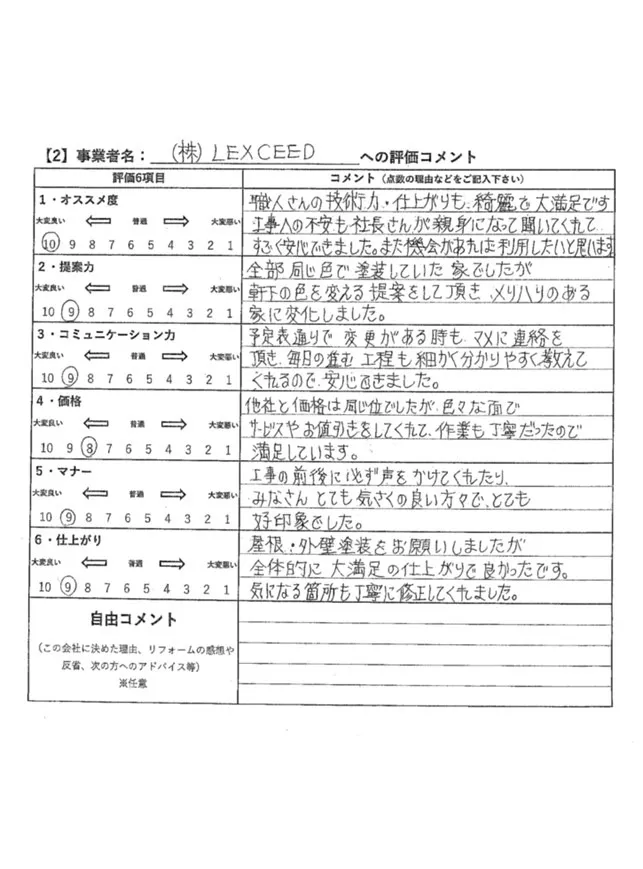 【2】事業者名： (株) LEXCEED への評価コメント
評価6項目
コメント（点数の理由などをご記入下さい）
1・オススメ度
大変良い 普通 大変悪い
10 9 8 7 6 5 4 3 2 1
職人さんの技術力・仕上がりも、綺麗で大満足です
工事への不安も社長さんが親身になって聞いてくれて
すごく安心できました。また機会があれば利用したいと思います
2・提案力
大変良い 普通 大変悪い
10 9 8 7 6 5 4 3 2 1
全部同じ色で塗装していた家でしたが
軒下の色を変える提案をして頂き、メリハリのある
家に変化しました。
3・コミュニケーション力
大変良い 普通 大変悪い
10 9 8 7 6 5 4 3 2 1
予定表通りで変更がある時も、マメに連絡を
頂き、毎日の進む工程も細かく分かりやすく教えて
くれるので、安心できました。
4・価格
大変良い 普通 大変悪い
10 9 8 7 6 5 4 3 2 1
他社と価格は同じ位でしたが、色々な面で
サービスやお値引きをしてくれて、作業も丁寧だったので
満足しています。
5・マナー
大変良い 普通 大変悪い
10 9 8 7 6 5 4 3 2 1
工事の前後に必ず声をかけてくれたり、
みなさんとても気さくの良い方々で、とても
好印象でした。
6・仕上がり
大変良い 普通 大変悪い
10 9 8 7 6 5 4 3 2 1
屋根・外壁塗装をお願いしましたが
全体的に大満足の仕上がりで良かったです。
気になる箇所も丁寧に修正してくれました。
自由コメント
（この会社に決めた理由、リフォームの感想や
反省、次の方へのアドバイス等）
※任意